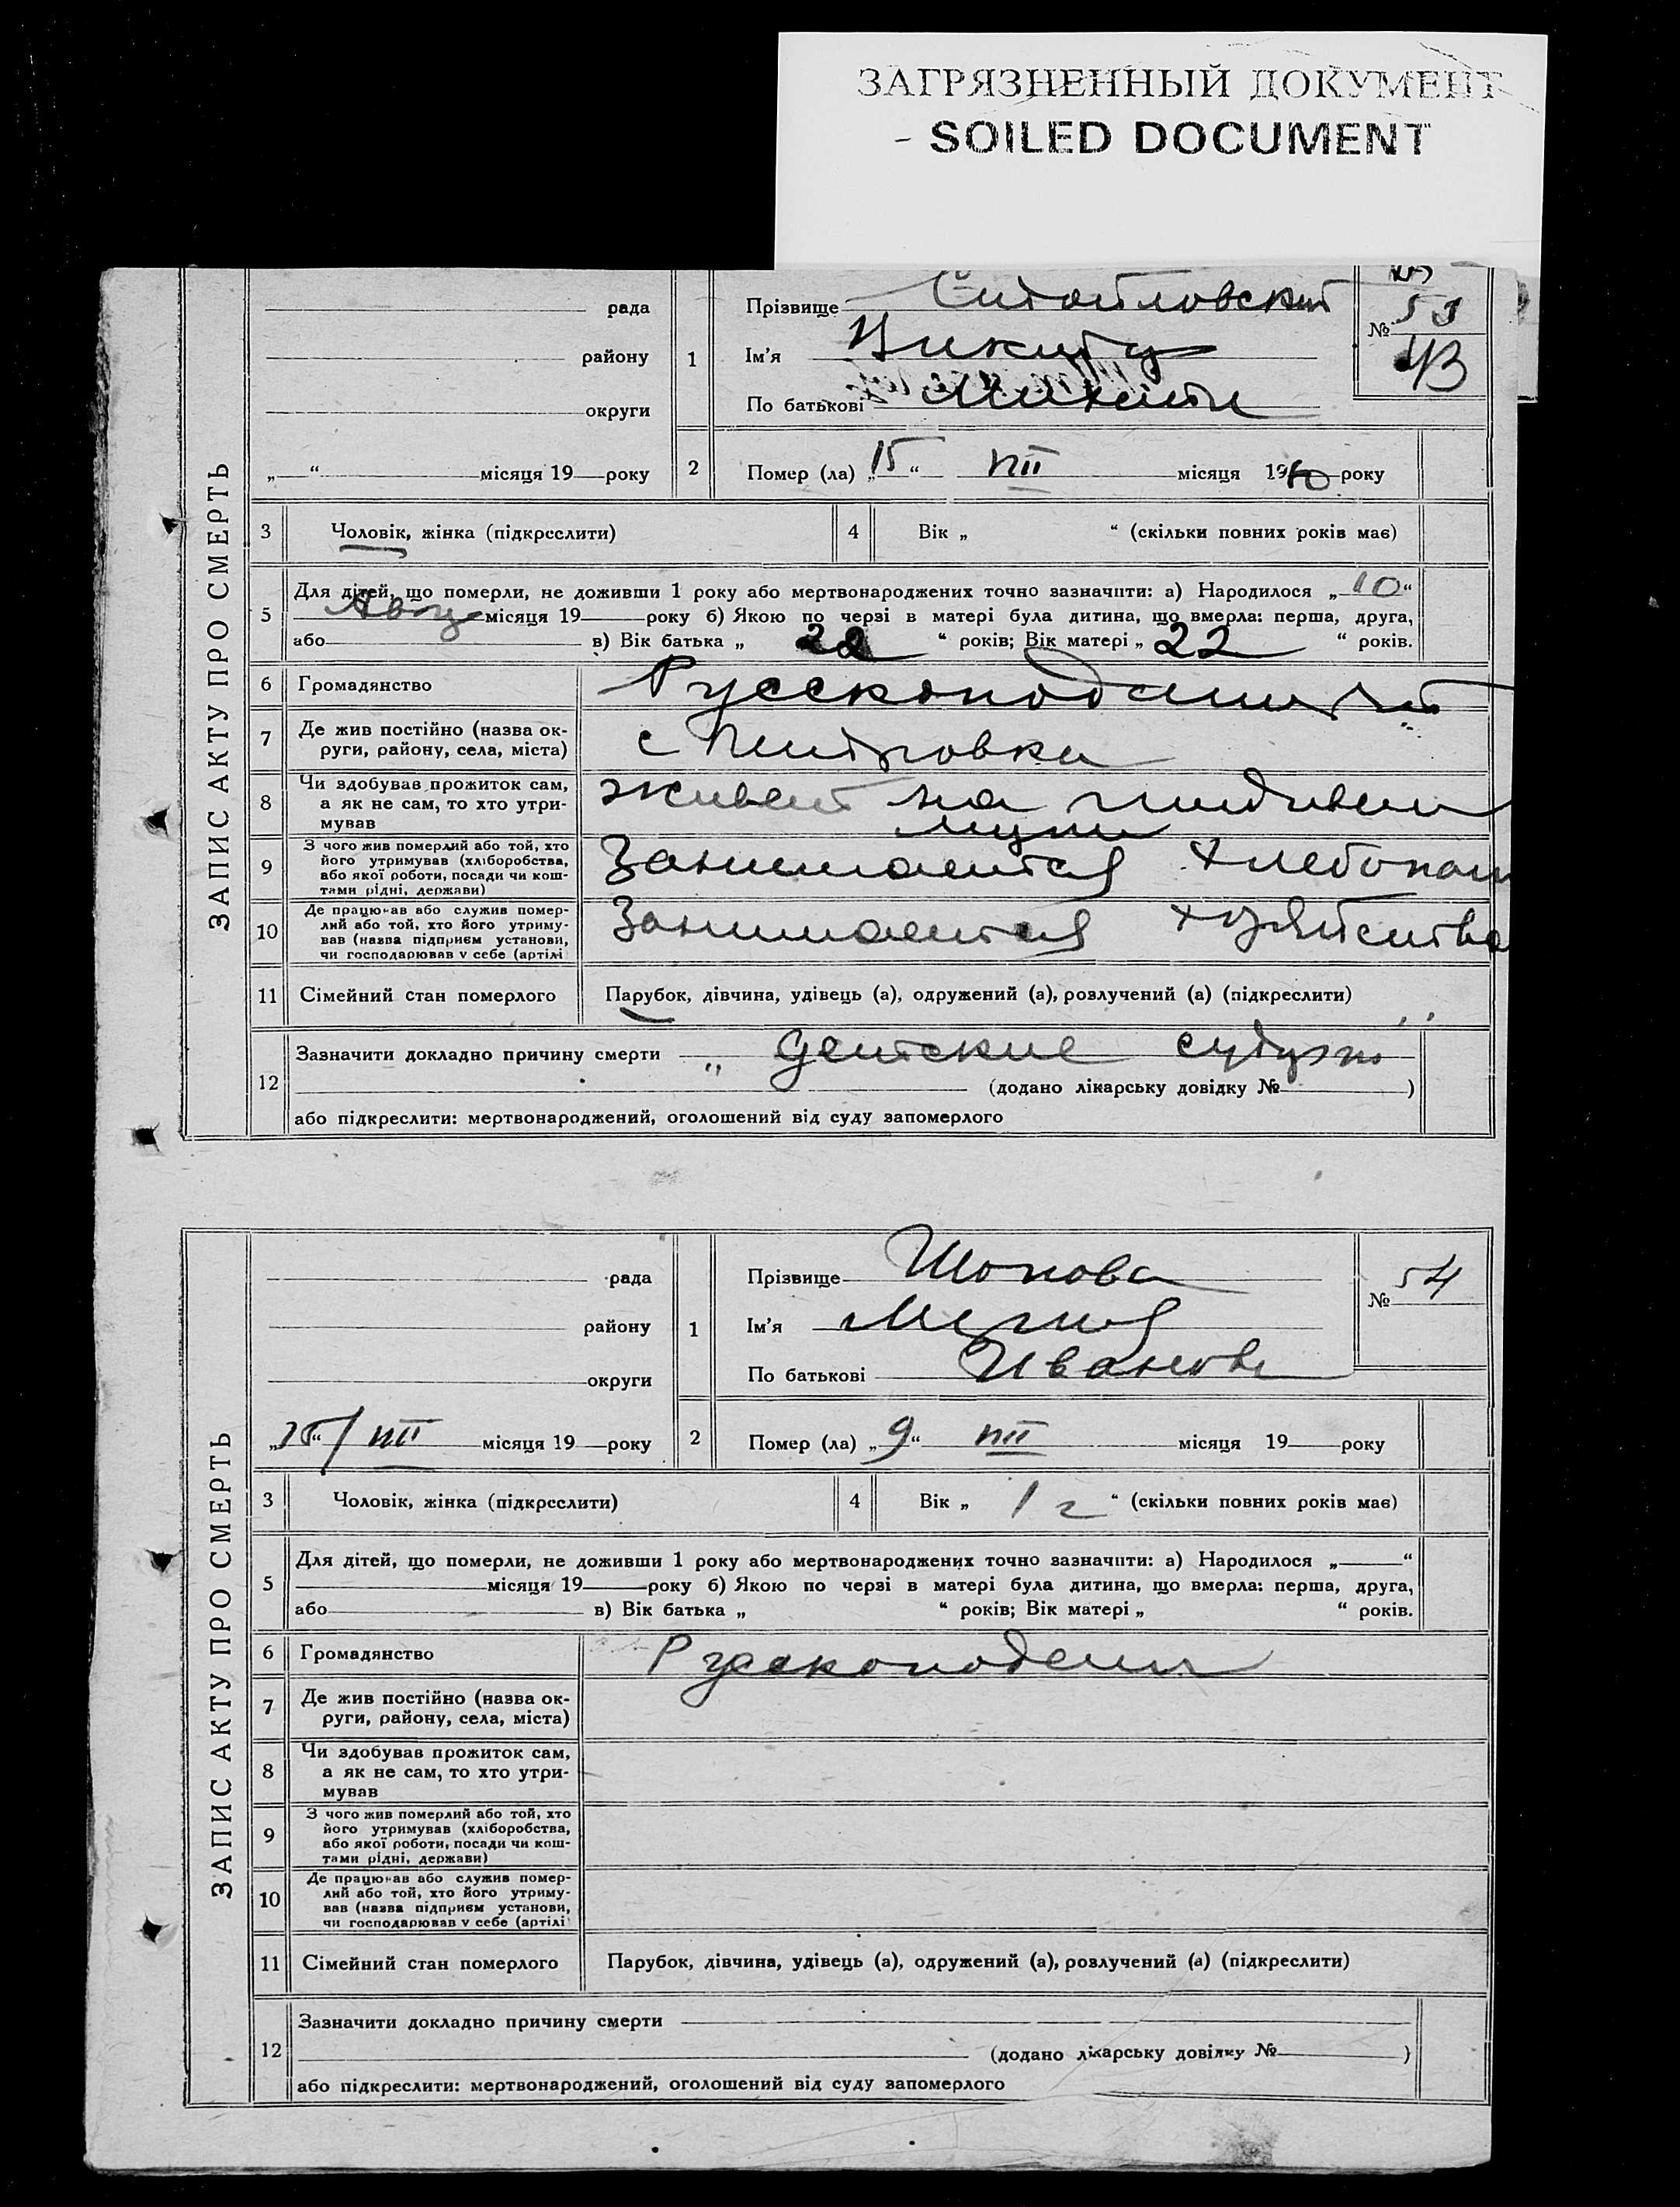 ЗАГРЯЗНЕННЫЙ ДОКУМЕНТ
- SOILED DOCUMENT
ЗАПИС АКТУ ПРО СМЕРТЬ
рада
району
округи
„ “ місяця 19 року
1
Прізвище
Ім'я Никита
По батькові
№ 53
43
2
Помер (ла) „15“ VIII місяця 1940 року
3 Чоловік, жінка (підкреслити)
4 Вік „ “ (скільки повних років має)
5 Для дітей, що померли, не доживши 1 року або мертвонароджених точно зазначити: а) Народилося „10“
Авг місяця 19 року б) Якою по черзі в матері була дитина, що вмерла: перша, друга,
або в) Вік батька „ 22 “ років; Вік матері „ 22 “ років.
6 Громадянство Русскоподаний
7 Де жив постійно (назва ок-
руги, району, села, міста) с
8 Чи здобував прожиток сам,
а як не сам, то хто утри-
мував живет на
9 З чого жив померлий або той, хто
його утримував (хліборобства,
або якої роботи, посади чи кош-
тами рідні, держави) Занимается
10 Де працював або служив помер-
лий або той, хто його утриму-
вав (назва підприєм установи,
чи господарював у себе (артілі Занимается
11 Сімейний стан померлого Парубок, дівчина, удівець (а), одружений (а), розлучений (а) (підкреслити)
12 Зазначити докладно причину смерти детские
(додано лікарську довідку № )
або підкреслити: мертвонароджений, оголошений від суду запомерлого
ЗАПИС АКТУ ПРО СМЕРТЬ
рада
району
округи
„ “ VIII місяця 19 року
1
Прізвище Шопова
Ім'я
По батькові Иванов
№ 54
2
Помер (ла) „9“ VIII місяця 19 року
3 Чоловік, жінка (підкреслити)
4 Вік „ 1 г “ (скільки повних років має)
5 Для дітей, що померли, не доживши 1 року або мертвонароджених точно зазначити: а) Народилося „ “
місяця 19 року б) Якою по черзі в матері була дитина, що вмерла: перша, друга,
або в) Вік батька „ “ років; Вік матері „ “ років.
6 Громадянство Русскоподаны
7 Де жив постійно (назва ок-
руги, району, села, міста)
8 Чи здобував прожиток сам,
а як не сам, то хто утри-
мував
9 З чого жив померлий або той, хто
його утримував (хліборобства,
або якої роботи, посади чи кош-
тами рідні, держави)
10 Де працював або служив помер-
лий або той, хто його утриму-
вав (назва підприєм установи,
чи господарював у себе (артілі
11 Сімейний стан померлого Парубок, дівчина, удівець (а), одружений (а), розлучений (а) (підкреслити)
12 Зазначити докладно причину смерти
(додано лікарську довідку № )
або підкреслити: мертвонароджений, оголошений від суду запомерлого